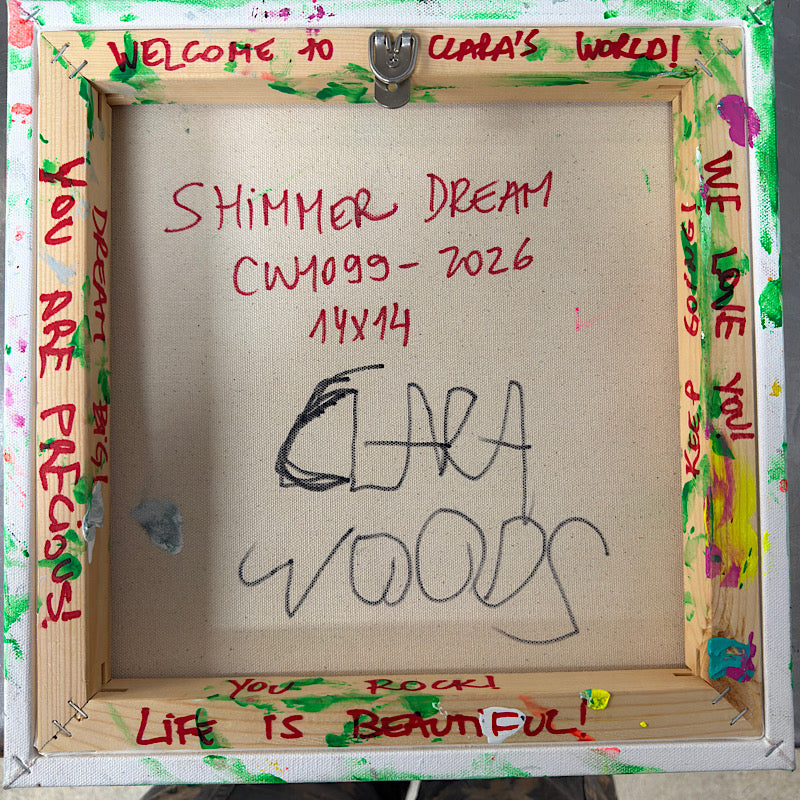 WELCOME TO CLARA'S WORLD!
SHiMMER DREAM
CW1099-2026
14X14
CLARA
WOODS
YOU ARE PRECiOUS!
DREAM BiG!
WE LOVE YOU!
KEEP GOiNG!
YOU ROCK!
LiFE iS BEAUTiFUL!